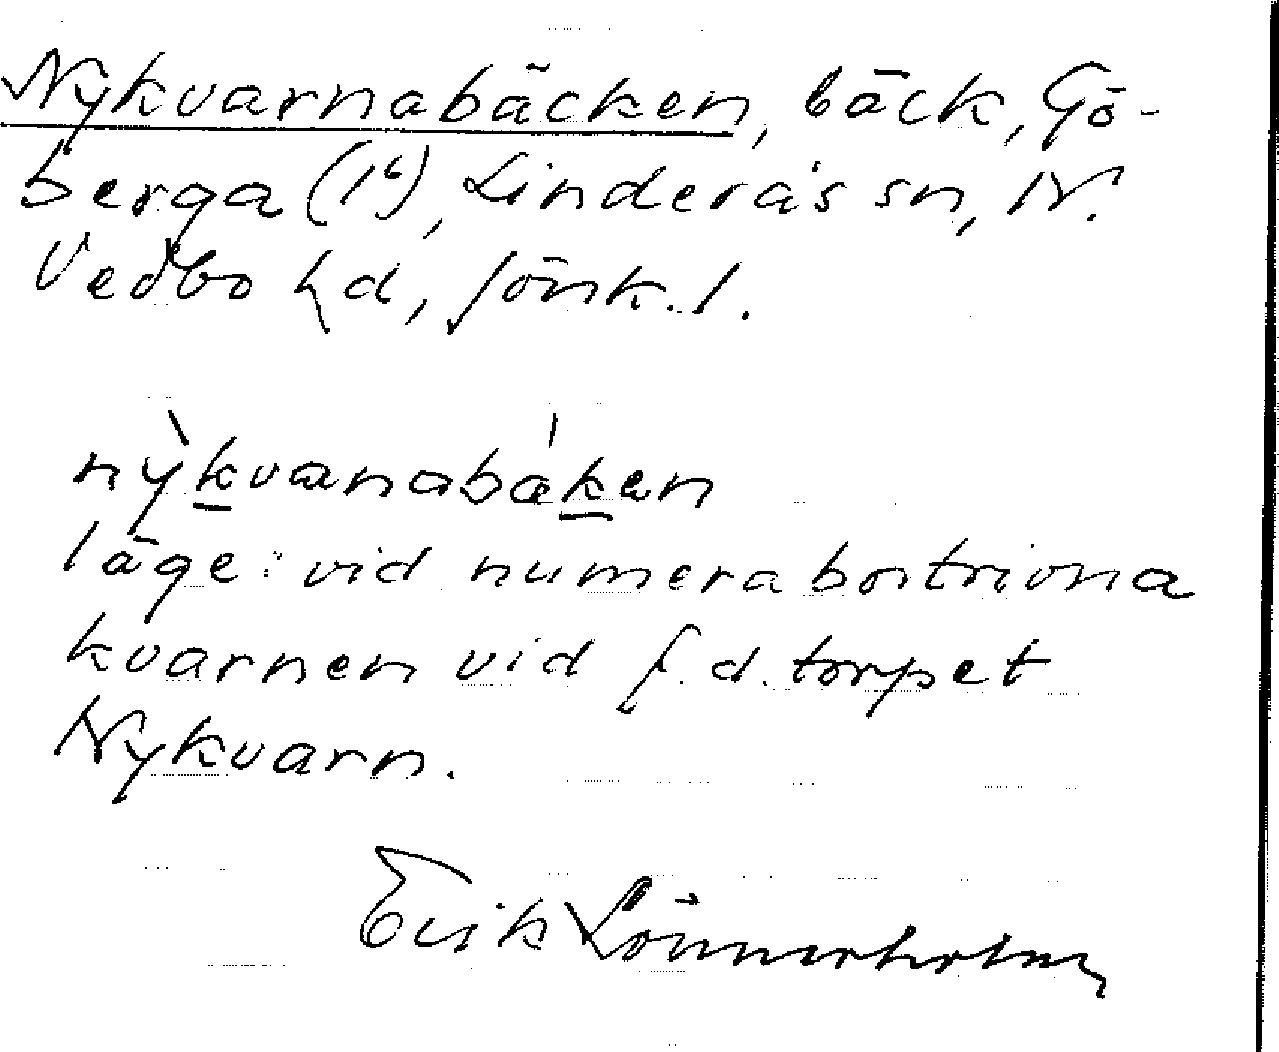 Nykvarnabäcken, bäck, Gö-
berga (1⁶), Linderås sn, N.
Vedbo hd, Jönk. l.
nỳkvanabáken
läge: vid numera bortrivna
kvarnen vid f. d. torpet
Nykvarn.
Erik Lönnerholm